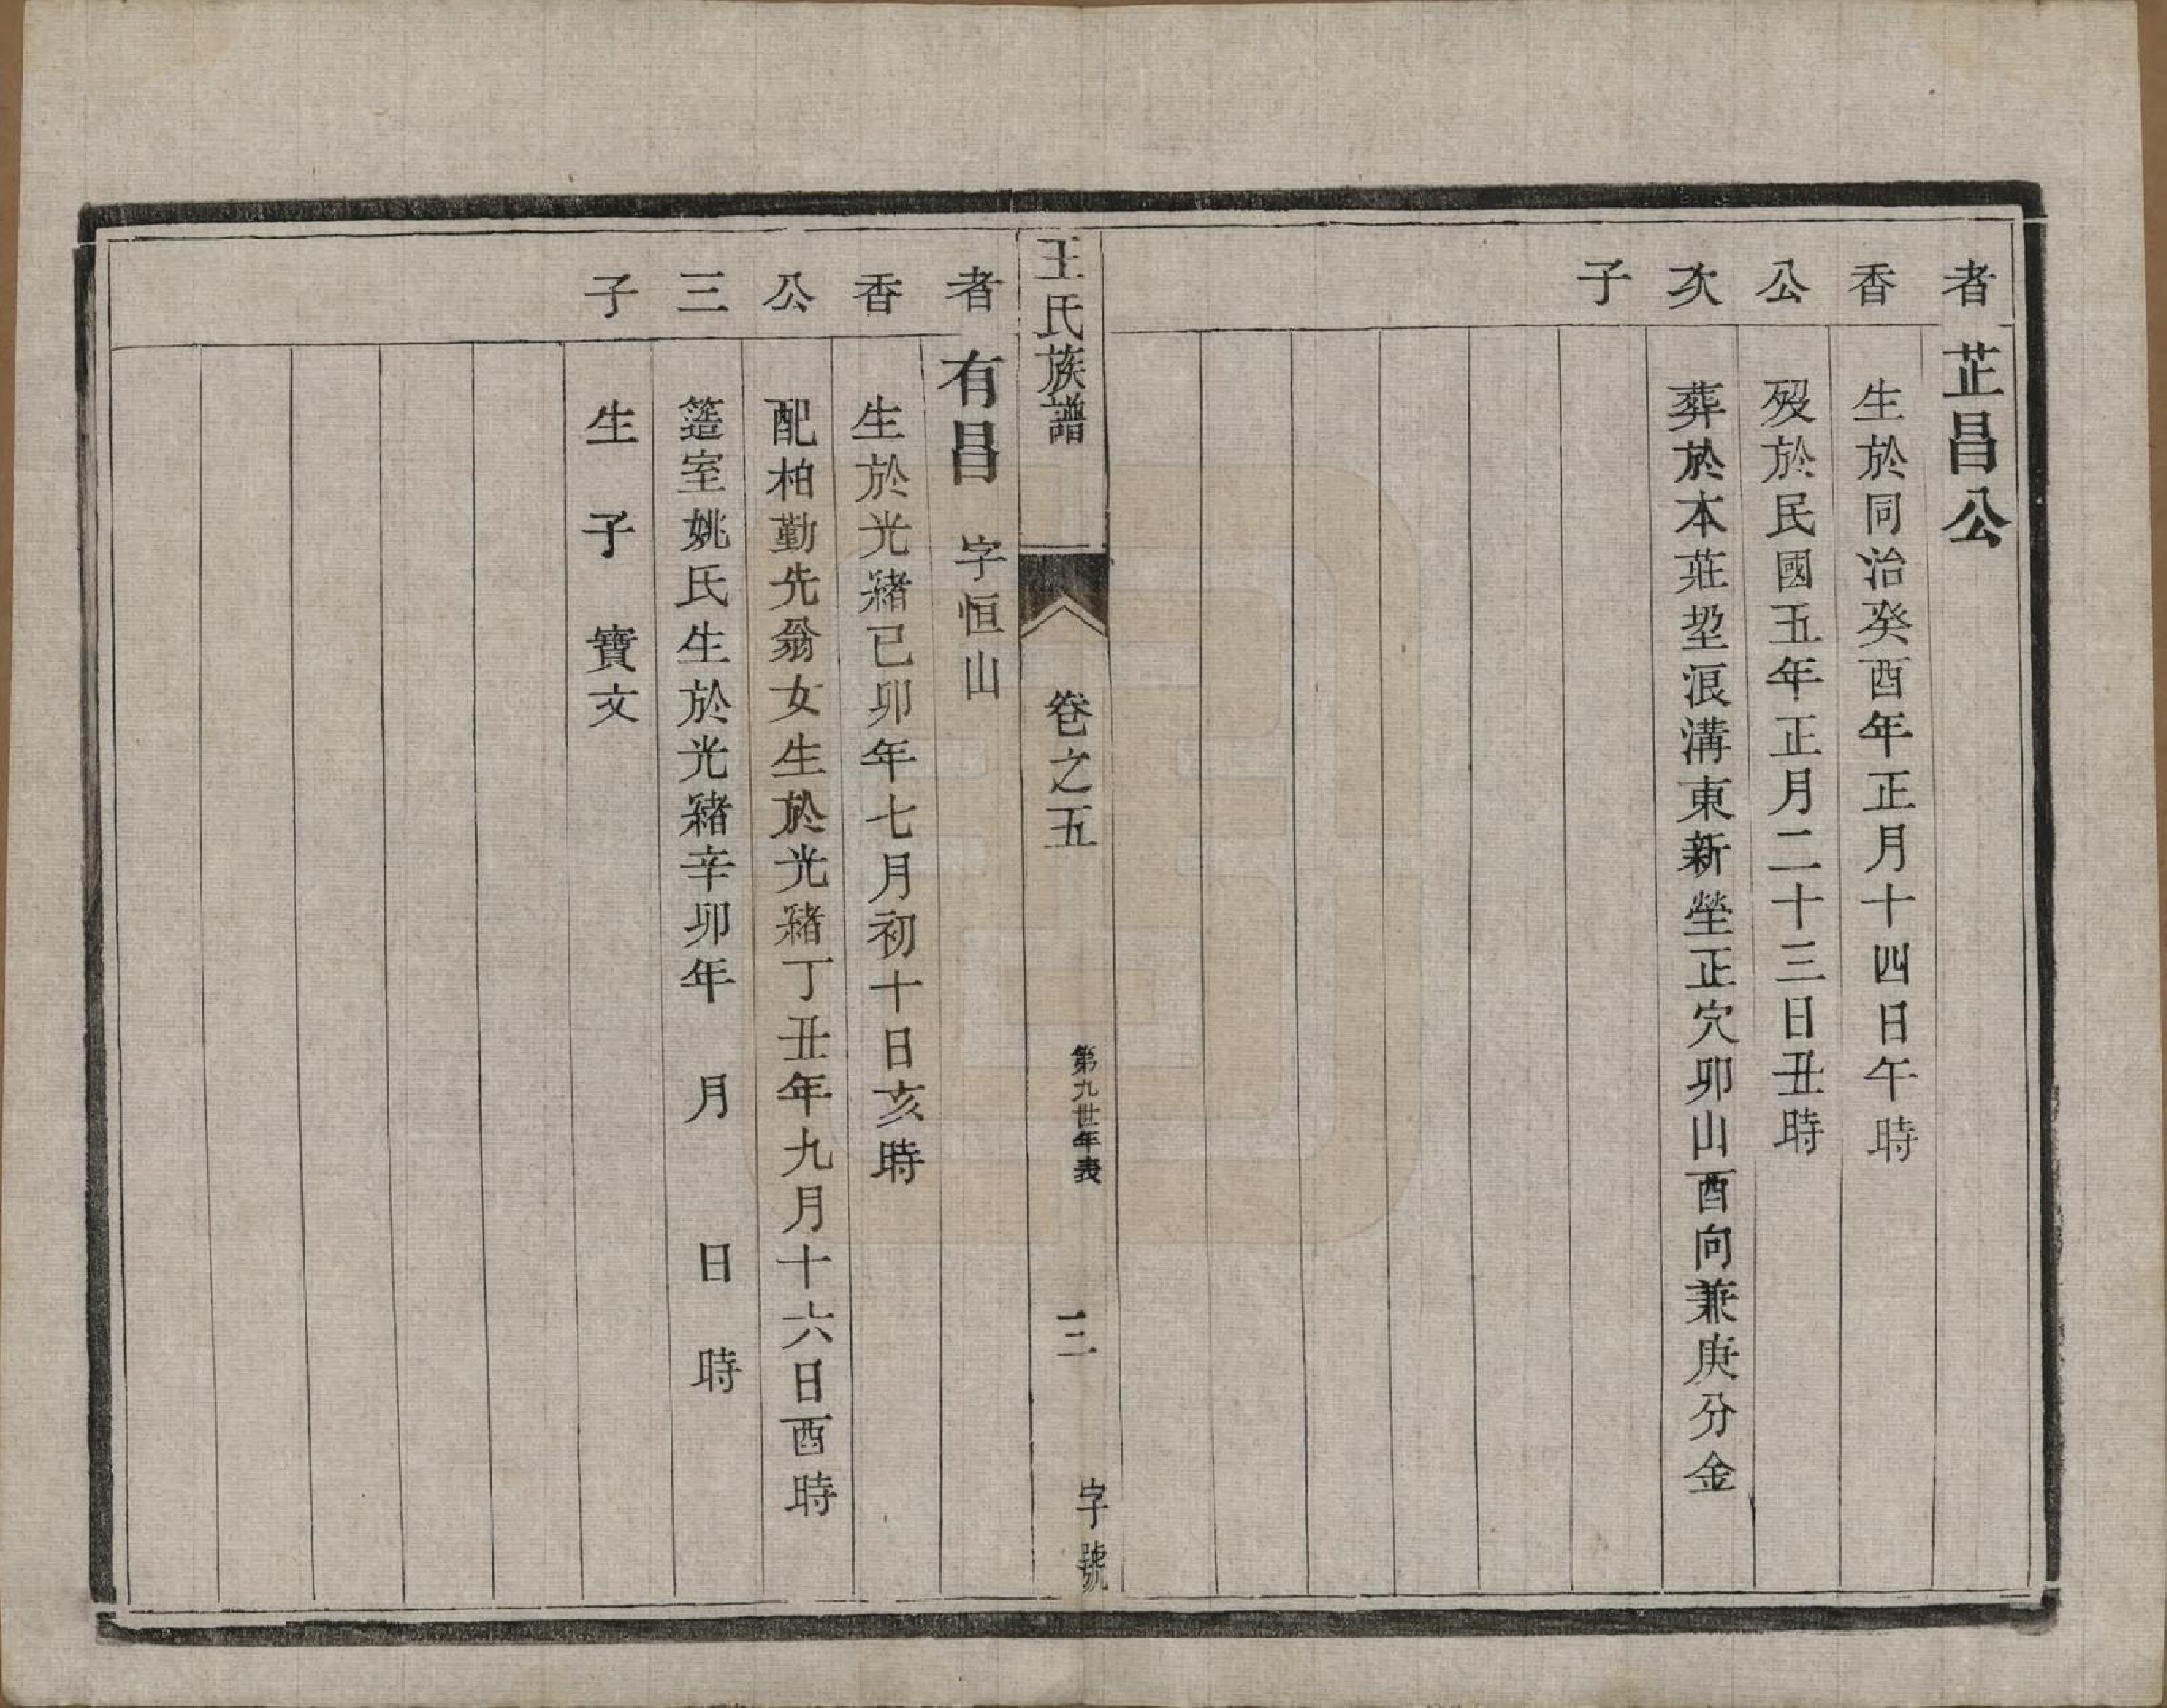 者香公次子
芷昌公
生於同治癸酉年正月十四日午時
歿於民國五年正月二十三日丑時
葬於本莊垇浪溝東新塋正穴卯山酉向兼庚分金
王氏族譜 卷之五 第九世年表 三 字號
者香公三子
有昌 字恒山
生於光緒己卯年七月初十日亥時
配柏勤先翁女生於光緒丁丑年九月十六日酉時
簉室姚氏生於光緒辛卯年 月 日 時
生子 寶文